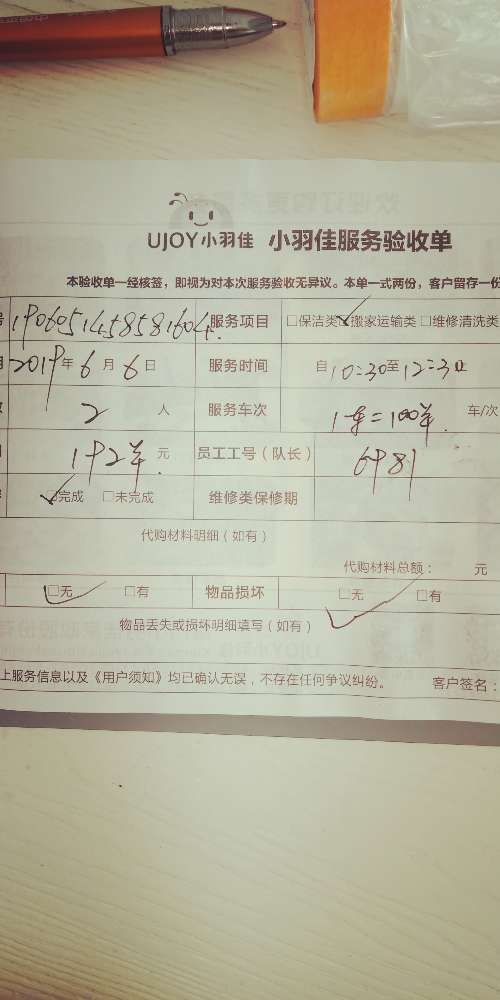 UJOY小羽佳 小羽佳服务验收单
本验收单一经核签，即视为对本次服务验收无异议。本单一式两份，客户留存一份
1906051458581604 服务项目 □保洁类 ☑搬家运输类 □维修清洗类
2019年6月6日 服务时间 自10:30至12:30止
2 人 服务车次 1车=100米 车/次
192 元 员工工号（队长） 6981
☑完成 □未完成 维修类保修期
代购材料明细（如有）
代购材料总额： 元
☑无 □有 物品损坏 ☑无 □有
物品丢失或损坏明细填写（如有）
上服务信息以及《用户须知》均已确认无误，不存在任何争议纠纷。 客户签名：